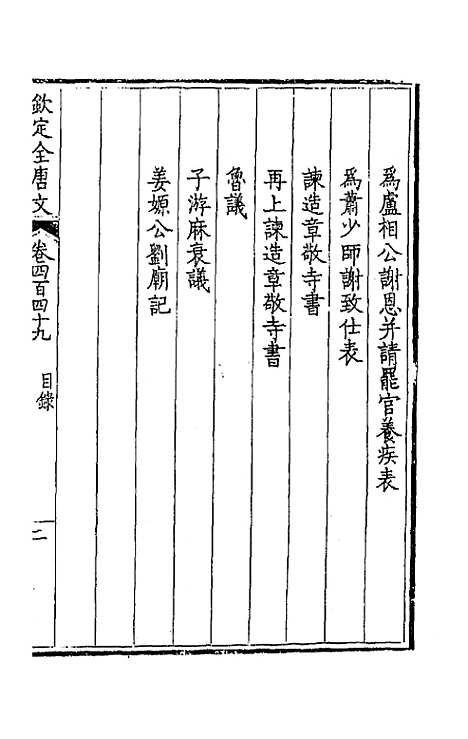 為盧相公謝恩并請罷官養疾表
為蕭少師謝致仕表
諫造章敬寺書
再上諫造章敬寺書
魯議
子游麻衰議
姜嫄公劉廟記
欽定全唐文 卷四百四十九 目錄 二